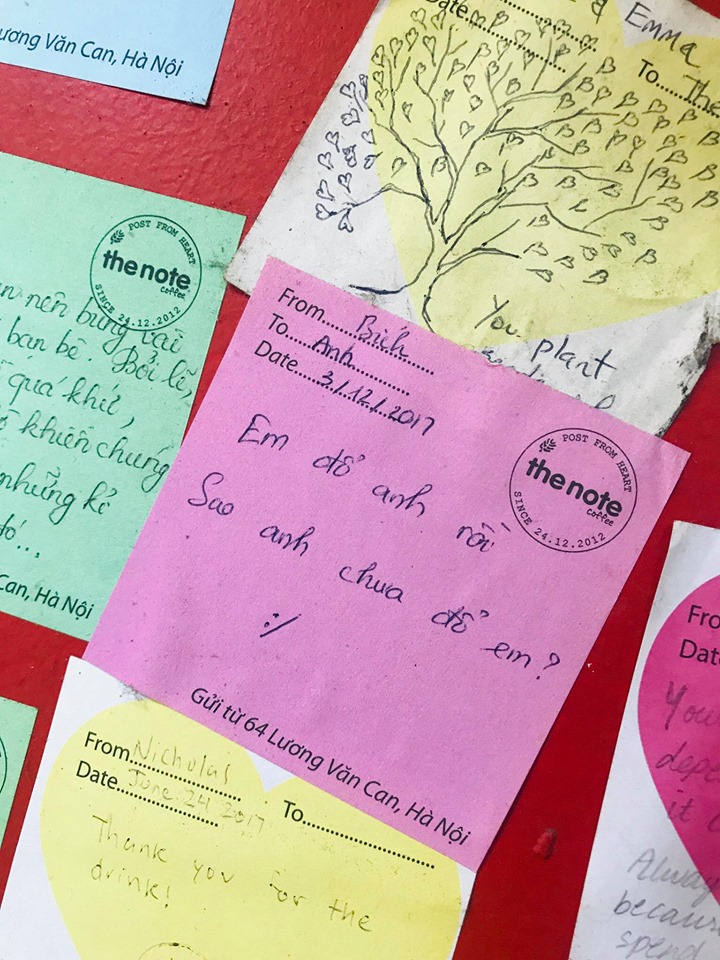 ương Văn Can, Hà Nội
Date
Emma
To
The
POST FROM HEART
the note
coffee
SINCE 24.12.2012
nên bung
bạn bè. Bởi lẽ,
quá khứ,
khiến chúng
những kẻ
đó...
Can, Hà Nội
You plant
From Bích
To Anh
Date 3/12/2017
POST FROM HEART
the note
coffee
SINCE 24.12.2012
Em đổ anh rồi
Sao anh chưa đổ em?
:/
Gửi từ 64 Lương Văn Can, Hà Nội
From Nicholas
Date June 24 2017
To
Thank you for the
drink!
Fro
Dat
You
depe
it
Always
becaus
spend